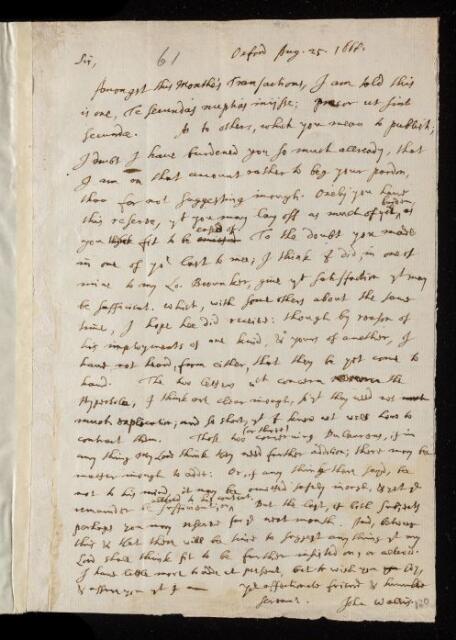 61
Oxford Aug. 25. 1668.
Sir,
Amongst this Months Transactions, I am told this
is one, Te secundas nuptias inijsse; precor ut sint
secundae. As to others, which you mean to publish;
I doubt I have burdened you so much allready, that
I am on that account rather to beg your pardon,
than for not suggesting inough. Onely you have
this reserve, yt you may lay off as much of yt burden, as
you think fit to be eased of. To the doubt you made
in one of yrs last to mee; I think I did, in one of
mine to my Lo. Brounker, give yt satisfaction yt may
be sufficient. Which, with some others about the same
time, I hope hee did receive: though by reason of
his imployments of one kind, & yours of another, I
have not heard, from either, that they be yet come to
hand. The two letters wch concern the
Hyperbole, I think are clear inough, yt they need not
much explication; and so short, yt I know not well how to
contract them. Those two (or three) concerning Dulaurens, if in
any thing My Lord think they need further addition; there may be
matter inough to adde: Or, if any thing there said, be
not to his mind, it may be omitted safely inough, & yet ye
remainder be sufficient. But the last, of both subjects
perhaps you may reserve for ye next month. And, between
this & that there will be time to suggest any thing yt my
Lord shall think fit to be further insisted on, or altered.
I have little more to adde at present, but to wish you joy,
& assure you yt I am
Yr affectionate friend & humble
servant. John Wallis.